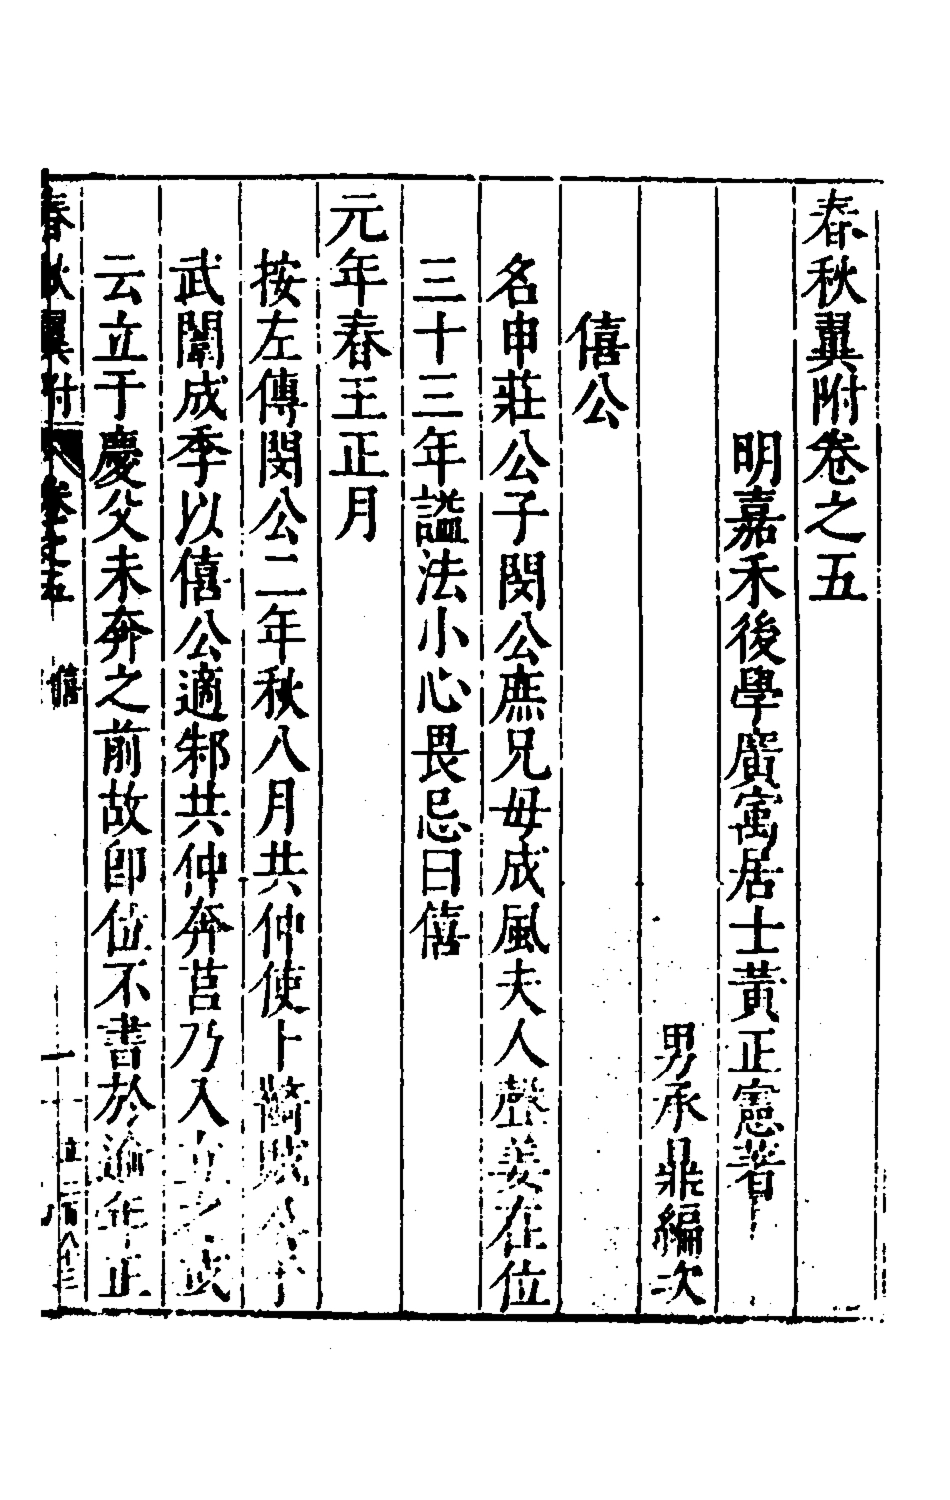 春秋翼附卷之五
明嘉禾後學廣寓居士黃正憲著
男承鼎編次
僖公
名申莊公子閔公庶兄毋成風夫人聲姜在位
三十三年謚法小心畏忌曰僖
元年春王正月
按左傳閔公二年秋八月共仲使卜齮賊公于
武闈成季以僖公適邾共仲奔莒乃入立之或
云立于慶父未奔之前故卽位不書於逾年正
春秋翼附 卷之五 僖 一